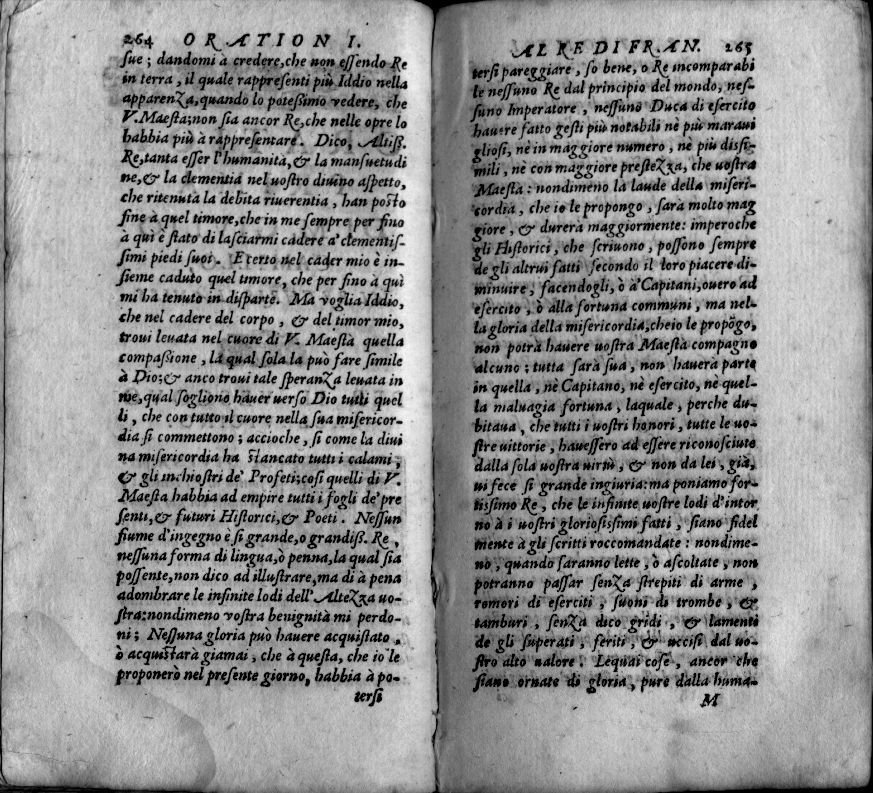 264 ORATIONI.
sue; dandomi à credere, che non essendo Re
in terra, il quale rappresenti più Iddio nella
apparenza, quando lo potessimo vedere, che
V. Maestà; non sia ancor Re, che nelle opre lo
habbia più à rappresentare. Dico, Altiß.
Re, tanta esser l'humanità, & la mansuetudi
ne, & la clementia nel uostro diuino aspetto,
che ritenuta la debita riuerentia, han posto
fine à quel timore, che in me sempre per fino
à quì è stato di lasciarmi cadere a' clementis-
simi piedi suoi. E certo nel cader mio è in-
sieme caduto quel timore, che per fino à quì
mi ha tenuto in disparte. Ma voglia Iddio,
che nel cadere del corpo, & del timor mio,
troui leuata nel cuore di V. Maestà quella
compassione, la qual sola la può fare simile
à Dio: & anco troui tale speranza leuata in
me, qual sogliono hauer uerso Dio tutti quel
li, che con tutto il cuore nella sua misericor-
dia si commettono; accioche, si come la diui
na misericordia ha stancato tutti i calami,
& gli inchiostri de' Profeti; cosi quelli di V.
Maesta habbia ad empire tutti i fogli de' pre
senti, & futuri Historici, & Poeti. Nessun
fiume d'ingegno è si grande, o grandiß. Re,
nessuna forma di lingua, ò penna, la qual sia
possente, non dico ad illustrare, ma di à pena
adombrare le infinite lodi dell'Altezza uo-
stra: nondimeno vostra benignità mi perdo-
ni; Nessuna gloria può hauere acquistato,
ò acquistarà giamai, che à questa, che io le
proponerò nel presente giorno, habbia à po-
tersi
AL RE DI FRAN. 265
tersi pareggiare, so bene, o Re incomparabi
le nessuno Re dal principio del mondo, nes-
suno Imperatore, nessuno Duca di esercito
hauere fatto gesti più notabili nè più maraui
gliosi, nè in maggiore numero, nè più dissi-
mili, nè con maggiore prestezza, che uostra
Maestà: nondimeno la laude della miseri-
cordia, che io le propongo, sarà molto mag
giore, & durerà maggiormente: imperoche
gli Historici, che scriuono, possono sempre
de gli altrui fatti secondo il loro piacere di-
minuire, facendogli, ò à Capitani, ouero ad
esercito, ò alla fortuna communi, ma nel-
la gloria della misericordia, cheio le propõgo,
non potrà hauere uostra Maestà compagno
alcuno; tutta sarà sua, non hauerà parte
in quella, nè Capitano, nè esercito, nè quel-
la maluagia fortuna, laquale, perche du-
bitaua, che tutti i uostri honori, tutte le uo-
stre uittorie, hauessero ad essere riconosciute
dalla sola uostra uirtù, & non da lei, già,
ui fece si grande ingiuria: ma poniamo for-
tissimo Re, che le infinite uostre lodi d'intor
no à i uostri gloriosissimi fatti, siano fidel
mente à gli scritti roccomandate: nondime-
no, quando saranno lette, ò ascoltate, non
potranno passar senza strepiti di arme,
romori di eserciti, suoni di trombe, &
tamburi, senza dico gridi, & lamenti
de gli superati, feriti, & uccisi dal uo-
stro alto ualore. Lequai cose, ancor che
siano ornate di gloria, pure dalla huma-
M